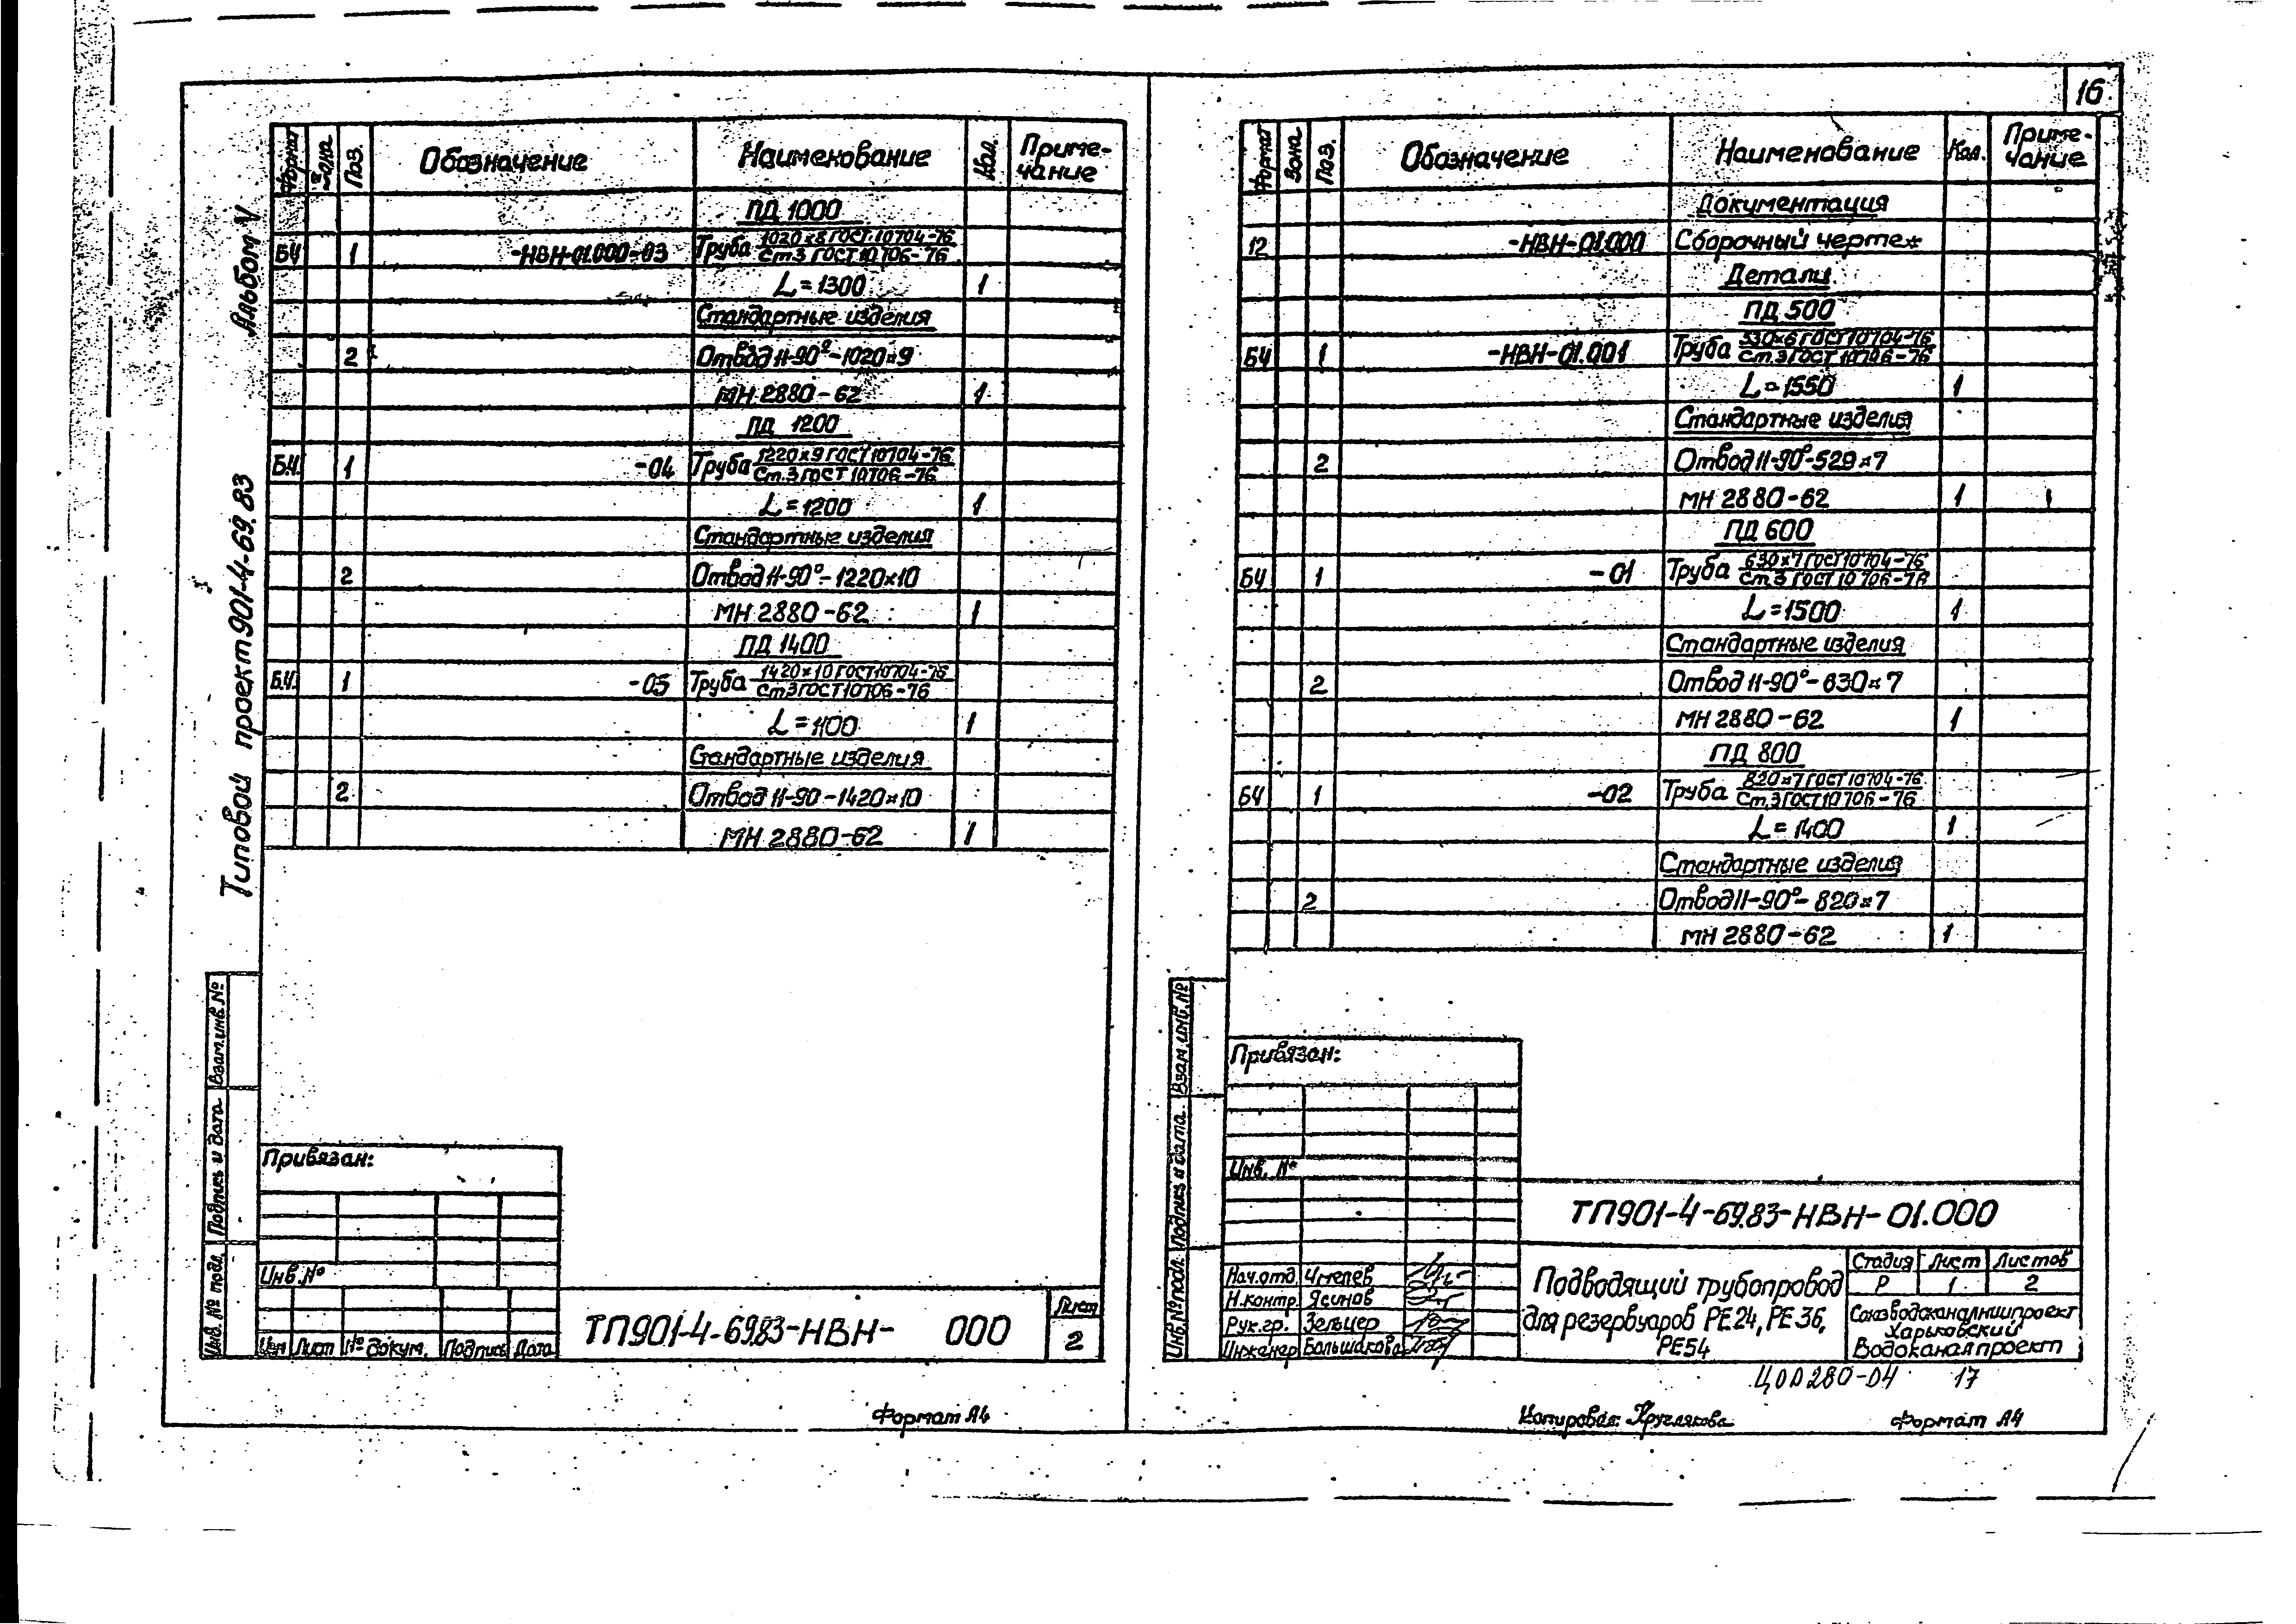 16
Типовой проект 901-4-69.83 Альбом V
Формат Зона Поз. Обозначение Наименование Кол. Приме-
чание
ПД 1000
БЧ 1 -НВН-01.000-03 Труба 1020×8 ГОСТ 10704-76
Ст.3 ГОСТ 10706-76
L=1300 1
Стандартные изделия
2 Отвод II-90°-1020×9
МН 2880-62 1
ПД 1200
Б.Ч. 1 -04 Труба 1220×9 ГОСТ 10704-76
Ст.3 ГОСТ 10706-76
L=1200 1
Стандартные изделия
2 Отвод II-90°-1220×10
МН 2880-62 1
ПД 1400
Б.Ч. 1 -05 Труба 1420×10 ГОСТ 10704-76
Ст3 ГОСТ 10706-76
L=1100 1
Стандартные изделия
2 Отвод II-90-1420×10
МН 2880-62 1
Взам.инв.№
Подпись и дата
Инв.№ подл.
Привязан:
Инв.№
Изм Лист № докум. Подпись Дата
ТП901-4-69.83-НВН- 000
Лист
2
Формат А4
Формат Зона Поз. Обозначение Наименование Кол. Приме-
чание
Документация
12 -НВН-01.000 Сборочный чертеж
Детали
ПД 500
БЧ 1 -НВН-01.001 Труба 530×6 ГОСТ 10704-76
Ст.3 ГОСТ 10706-76
L=1550 1
Стандартные изделия
2 Отвод II-90°-529×7
МН 2880-62 1
ПД 600
БЧ 1 -01 Труба 630×7 ГОСТ 10704-76
Ст.3 ГОСТ 10706-76
L=1500 1
Стандартные изделия
2 Отвод II-90°-630×7
МН 2880-62 1
ПД 800
БЧ 1 -02 Труба 820×7 ГОСТ 10704-76
Ст.3 ГОСТ 10706-76
L=1400 1
Стандартные изделия
2 Отвод II-90°-820×7
МН 2880-62 1
Взам.инв.№
Подпись и дата
Инв.№ подл.
Привязан:
Инв. №
ТП901-4-69.83-НВН-01.000
Нач.отд. Чмелев
Н.контр. Ясинов
Рук.гр. Зельцер
Инженер Большакова
Подводящий трубопровод
для резервуаров РЕ24, РЕ36,
РЕ54
Стадия Лист Листов
Р 1 2
Союзводоканалниипроект
Харьковский
Водоканалпроект
Ц00280-04 17
Копировал: Круглякова
Формат А4